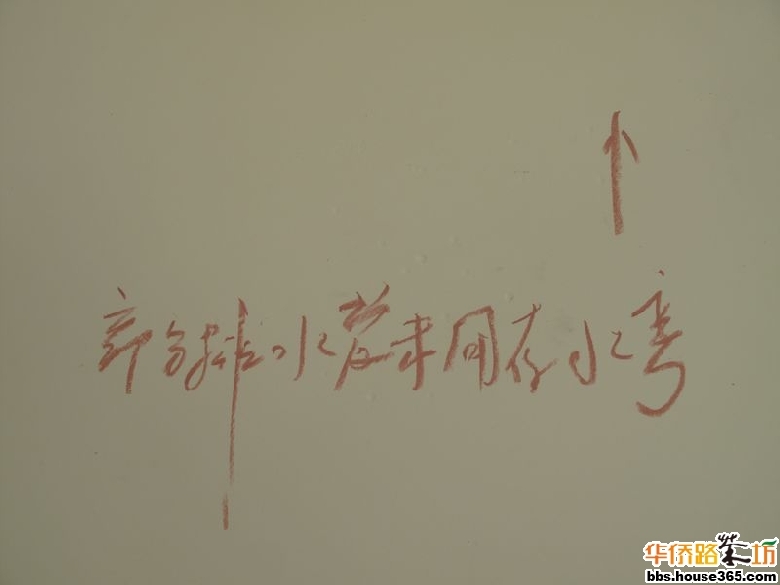 部分排水管未用存水弯
华侨路茶坊
bbs.house365.com